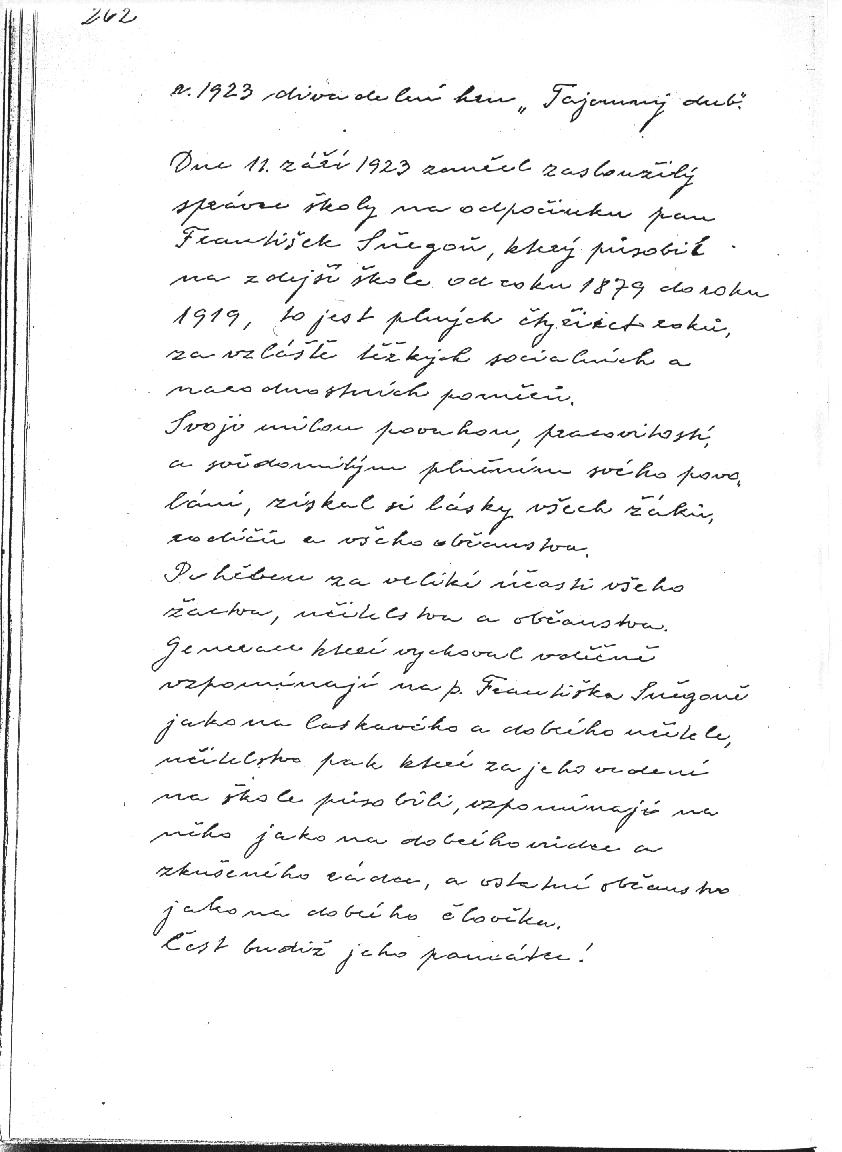 262
r. 1923 divadelní hru „Tajemný dub".
Dne 11. září 1923 zemřel zasloužilý
správce školy na odpočinku pan
František Sněgoň, který působil
na zdejší škole od roku 1879 do roku
1919, to jest plných čtyřicet roků,
za vzláště těžkých socialních a
narodnostních poměrů.
Svojí milou povahou, pracovitostí,
a svědomitým plněním svého povo„
lání, získal si lásky všech žáků,
rodičů a všeho občanstva.
Pohřben za veliké účasti všeho
žactva, učitelstva a občanstva.
Generace kteří vychoval vděčně
vzpomínají na p. Františka Sněgoně
jako na laskavého a dobrého učitele,
učitelstvo pak kteří za jeho vedení
na škole působili, vzpomínají na
něho jako na dobrého vůdce a
zkušeného rádce, a ostatní občanstvo
jako na dobrého člověka.
Čest budiž jeho památce!